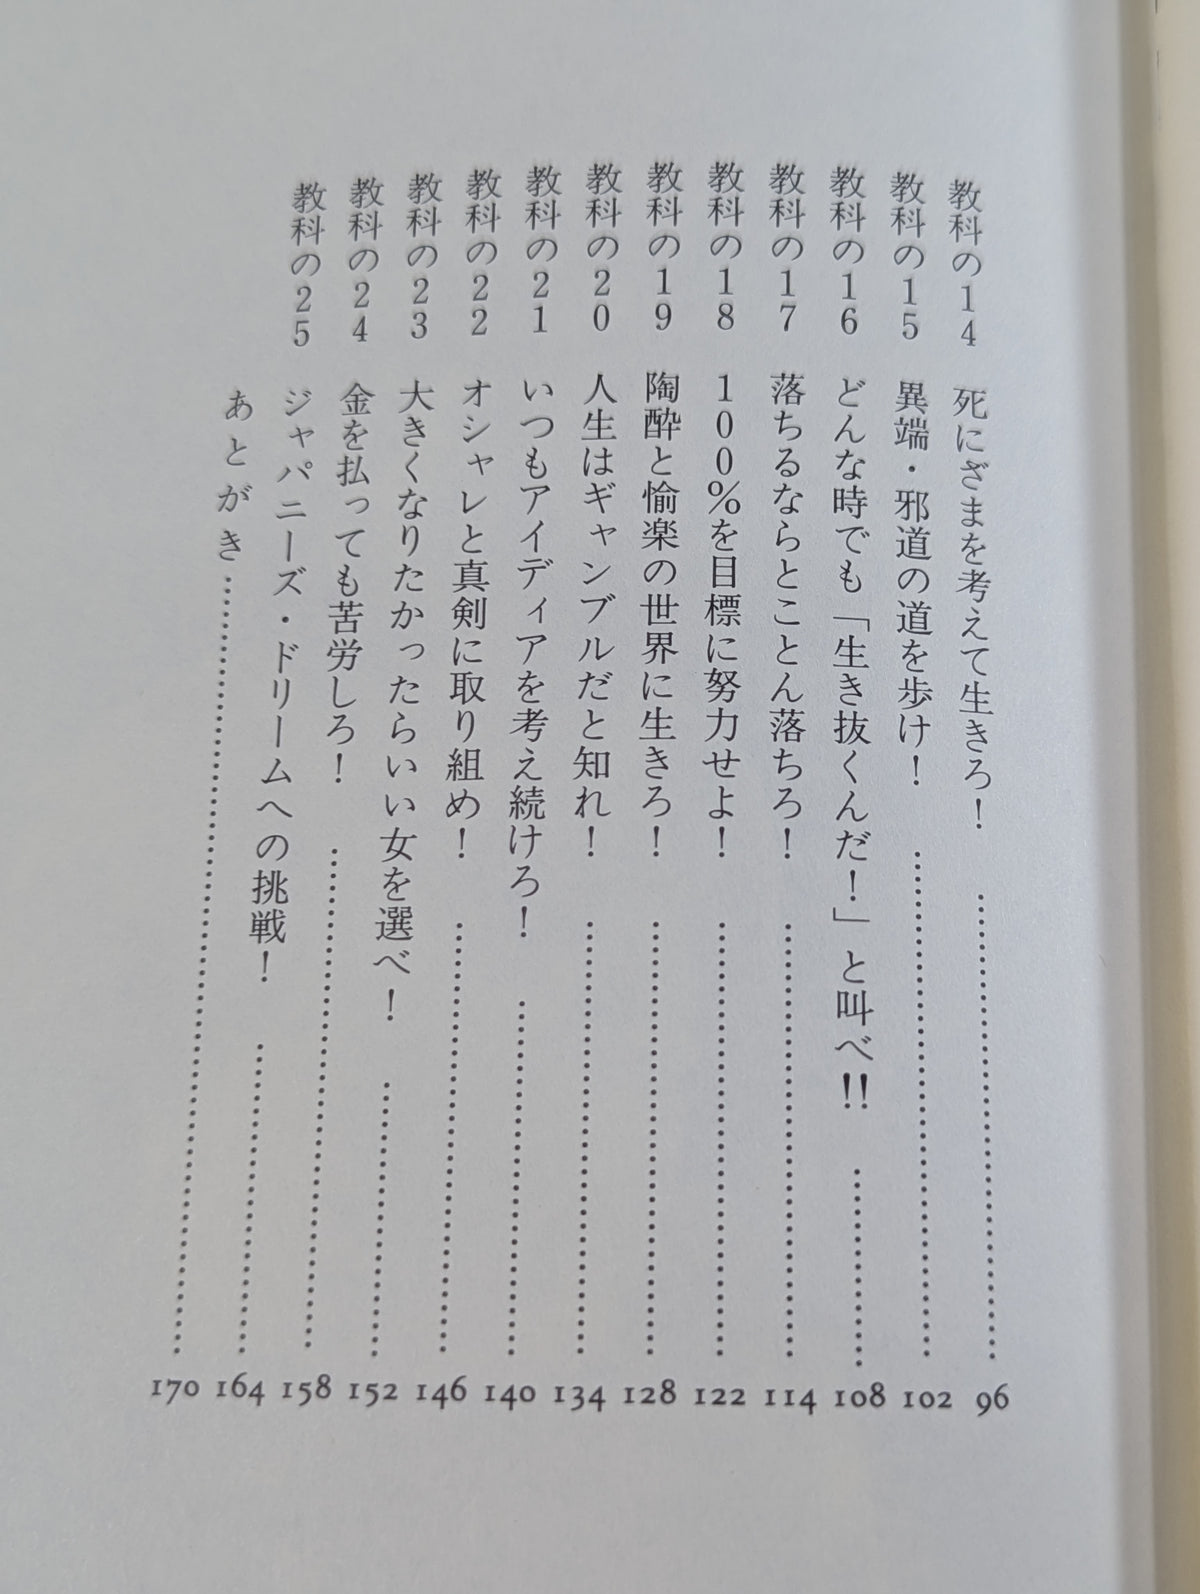 教科の14 死にざまを考えて生きろ！ 96
教科の15 異端・邪道の道を歩け！ 102
教科の16 どんな時でも「生き抜くんだ！」と叫べ!! 108
教科の17 落ちるならとことん落ちろ！ 114
教科の18 100%を目標に努力せよ！ 122
教科の19 陶酔と愉楽の世界に生きろ！ 128
教科の20 人生はギャンブルだと知れ！ 134
教科の21 いつもアイディアを考え続けろ！ 140
教科の22 オシャレと真剣に取り組め！ 146
教科の23 大きくなりたかったらいい女を選べ！ 152
教科の24 金を払っても苦労しろ！ 158
教科の25 ジャパニーズ・ドリームへの挑戦！ 164
あとがき 170